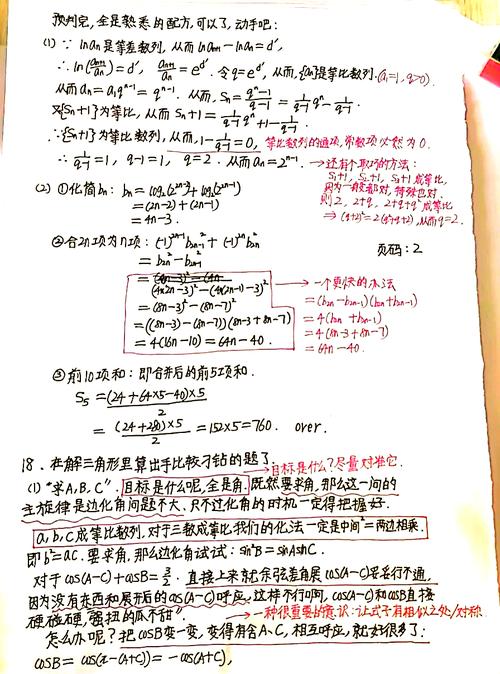 预判完,全是熟悉的配方,可以了,动手吧:
(1) ∵ lnan是等差数列,从而lnan+1-lnan=d',
∴ ln(an+1/an)=d', an+1/an=e^d'. 令q=e^d',从而,{an}是等比数列.(a1=1,q>0).
从而an=a1q^n-1=q^n-1. 从而,Sn=(q^n-1)/(q-1)=1/(q-1)q^n-1/(q-1).
又{Sn+1}为等比,从而Sn+1=1/(q-1)q^n+1-1/(q-1).
∴{Sn+1}为等比数列,从而,1-1/(q-1)=0, 等比数列的通项,常数项必然为0.
∴ 1/(q-1)=1, q-1=1, q=2. 从而an=2^n-1.
→还有个取巧的方法:
S1+1, S2+1, S3+1成等比,
因为一般都对,特殊也对.
则2, 2+q, 2+q+q²成等比
⇒(q+2)²=2(q²+q+2),从而q=2.
(2) ①化简bn: bn=log2(2^2n-2)+log2(2^2n-1)
=(2n-2)+(2n-1)
=4n-3.
②合2n项为n项: (-1)^2n-1 b²2n-1+(-1)^2n b²2n
页码: 2
=b2n²-b²2n-1
=(4×2n-3)²-(4×(2n-1)-3)²
=(8n-3)²-(8n-7)²
=((8n-3)-(8n-7))(8n-3+8n-7)
=4(16n-10)=64n-40.
→一个更快的办法
=(b2n-b2n-1)(b2n+b2n-1)
=4(b2n+b2n-1)
=4(8n-3+8n-7)
=64n-40.
③前10项和: 即合并后的前5项和.
S5=(24+64×5-40)×5/2
=(24+280)×5/2=152×5=760. over.
18. 在解三角形里算出手比较刁钻的题了.
→目标是什么?尽量对准它.
(1) "求A,B,C". 目标是什么呢,全是角. 既然要求角,那么这一问的
主旋律是边化角问题不大、只不过化角的时机一定得把握好.
a,b,c成等比数列,对于三数成等比我们的化法一定是中间²=两边相乘.
即b²=ac. 要求角,那么边化角试试: sin²B=sinAsinC.
对于cos(A-C)+cosB=3/2. 直接上来就余弦差角展cos(A-C)妥妥行不通,
因为没有东西和展开后的cos(A-C)呼应,这样不行啊, cos(A-C)和cosB直接
硬碰硬,"强扭的瓜不甜".
→一种很重要的意识: 让式子有相似之处/对称.
怎么办呢? 把cosB变一变,变得有含A、C,相互呼应,就好很多了:
cosB=cos(π-(A+C))=-cos(A+C),